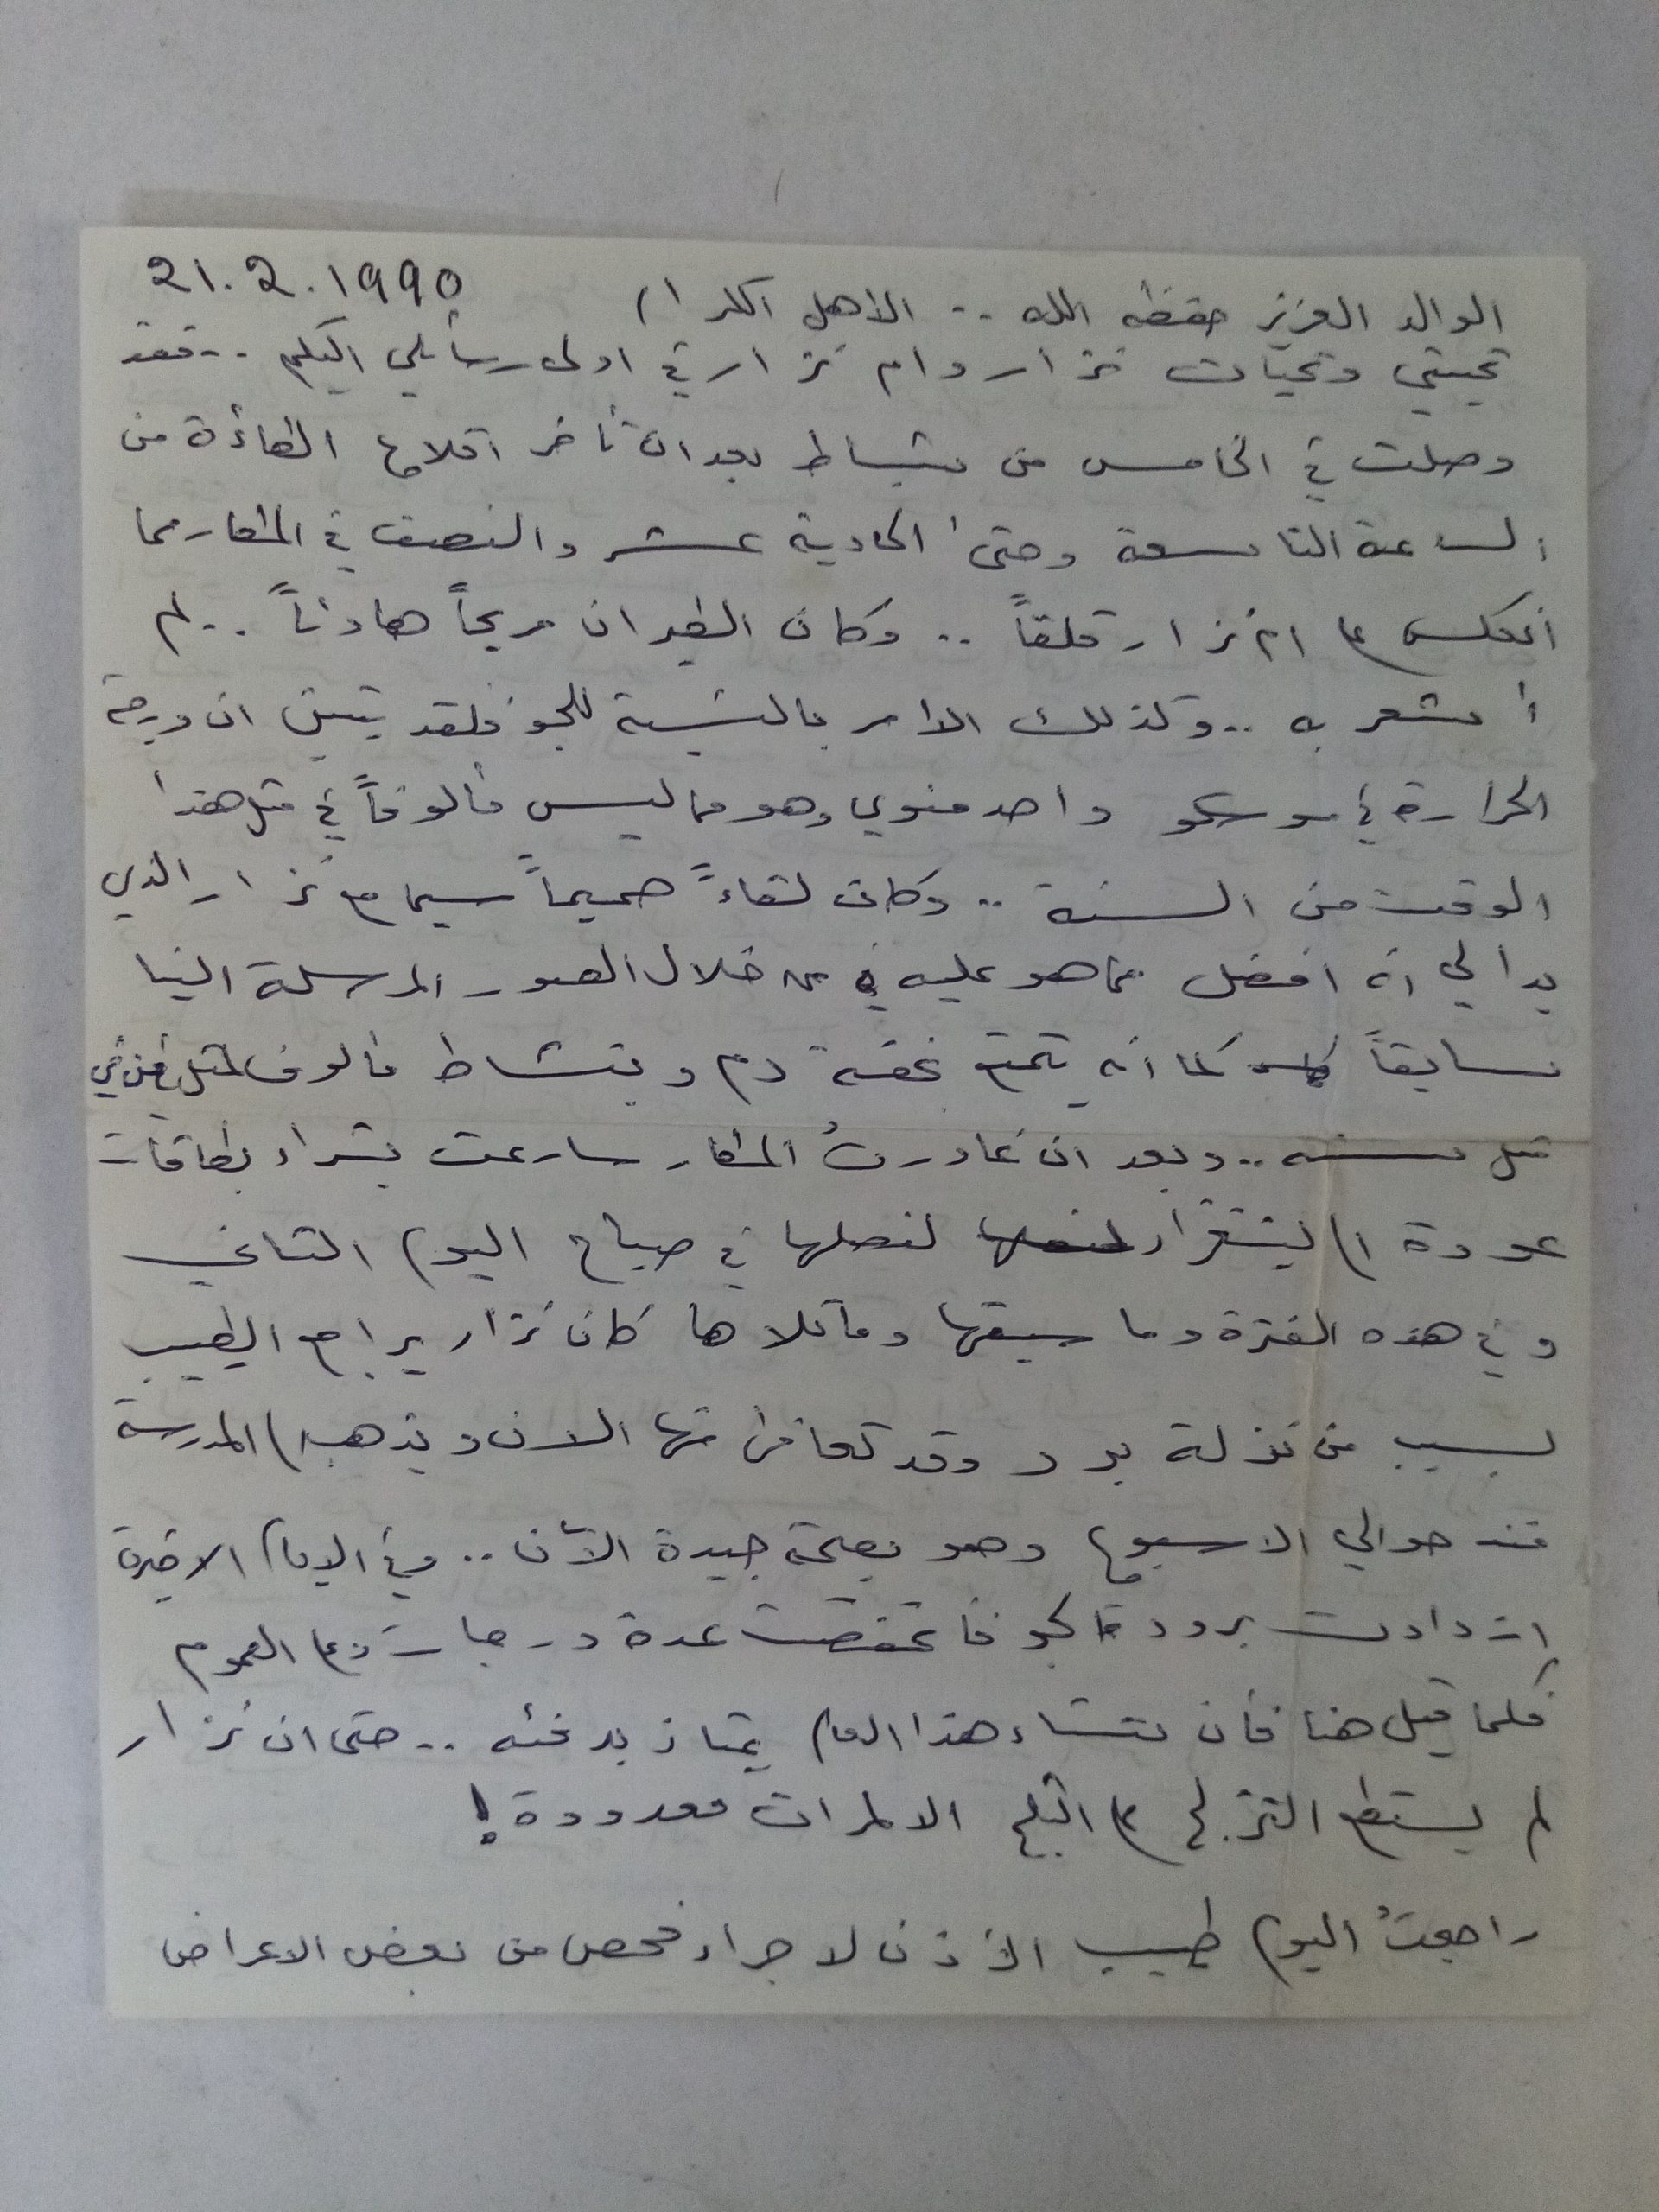 21.2.1990
الوالد العزيز حفظه الله .. الأهل الكرام
تحيتي وتحيات نزار وام نزار في اولى رسائلي اليكم .. فقد
وصلت في الخامس من شباط بعد ان تأخر اقلاع الطائرة من
الساعة التاسعة وحتى الحادية عشر والنصف في المطار مما
انعكس على ام نزار قلقاً .. وكان الطيران مريحاً هادئاً .. لم
أشعر به .. وكذلك الامر بالنسبة للجو فلقد تبين ان درجة
الحرارة في موسكو واحد مئوي وهو ما ليس مألوفاً في مثل هذا
الوقت من السنة .. وكان لقاءً حميماً سيما مع نزار الذي
بدا لي انه افضل مما هو عليه من خلال الصور المرسلة الينا
سابقاً كما انه يتمتع بخفة دم وبنشاط مألوف لمثل من في
مثل سنه .. وبعد ان غادرتُ المطار سارعت بشراء بطاقات
عودة ام لنصلها في صباح اليوم التالي
وفي هذه الفترة وما سبقها وما تلاها كان نزار يراجع الطبيب
بسبب من نزلة برد وقد تعافى منها الان ويذهب الى المدرسة
منذ حوالي الاسبوع وهو بصحة جيدة الآن .. وفي الايام الاخيرة
ازدادت برودة الجو فانخفضت عدة درجات وعلى العموم
فكما قيل هنا فأن شتاء هذا العام يمتاز بدفئه .. حتى ان نزار
لم يستطع التزلج على الثلج الا لمرات معدودة !
راجعتُ اليوم طبيب الأذن لاجراء فحص من بعض الاعراض